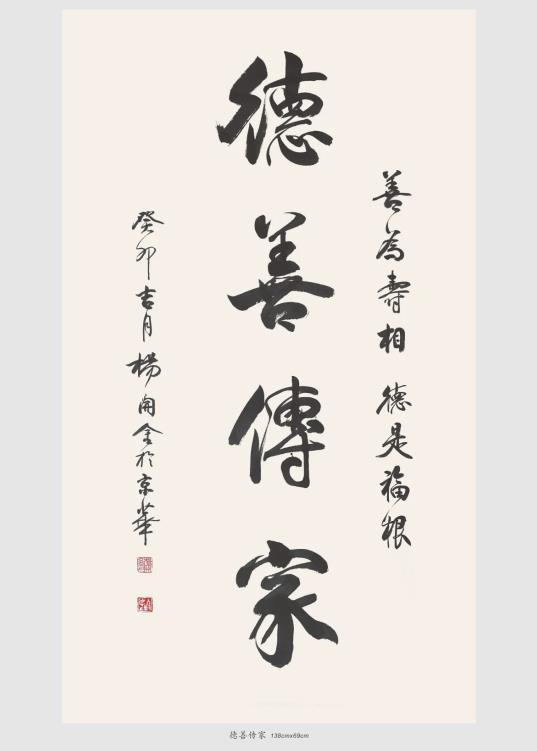 善為壽相 德是福根
德善傳家
癸卯吉月楊開金於京華
德善传家 138cmx69cm